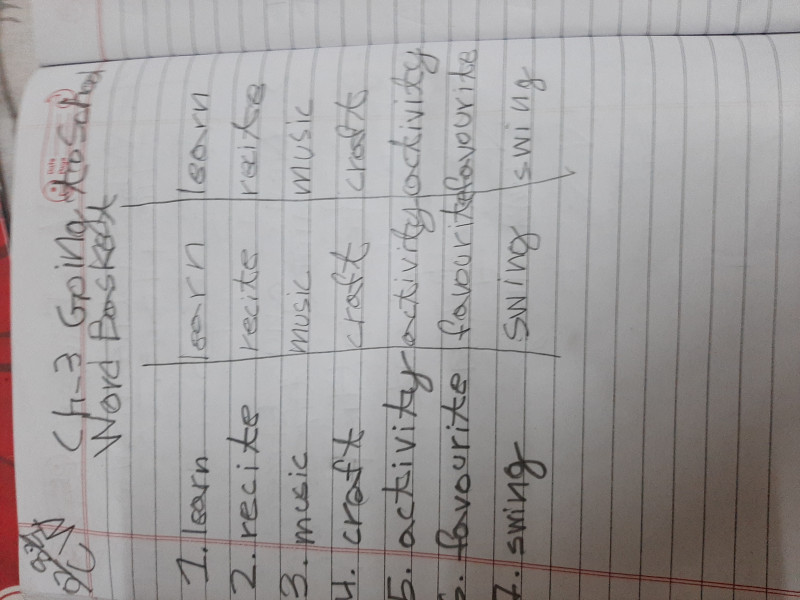 Ch-3 Going to School
Word Basket
1. learn learn learn
2. recite recite recite
3. music music music
4. craft craft craft
5. activity activity activity
6. favourite favourite favourite
7. swing swing swing